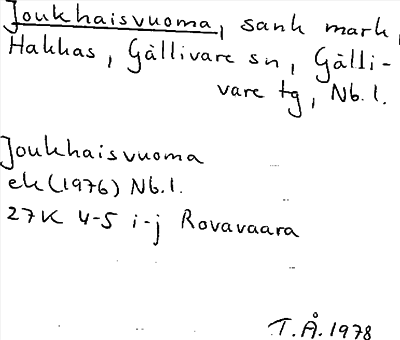 Joukhaisvuoma, sank mark,
Hakkas, Gällivare sn, Gälli-
vare tg, Nb.l.
Joukhaisvuoma
ek (1976) Nb.l.
27K 4-5 i-j Rovavaara
T.Å. 1978